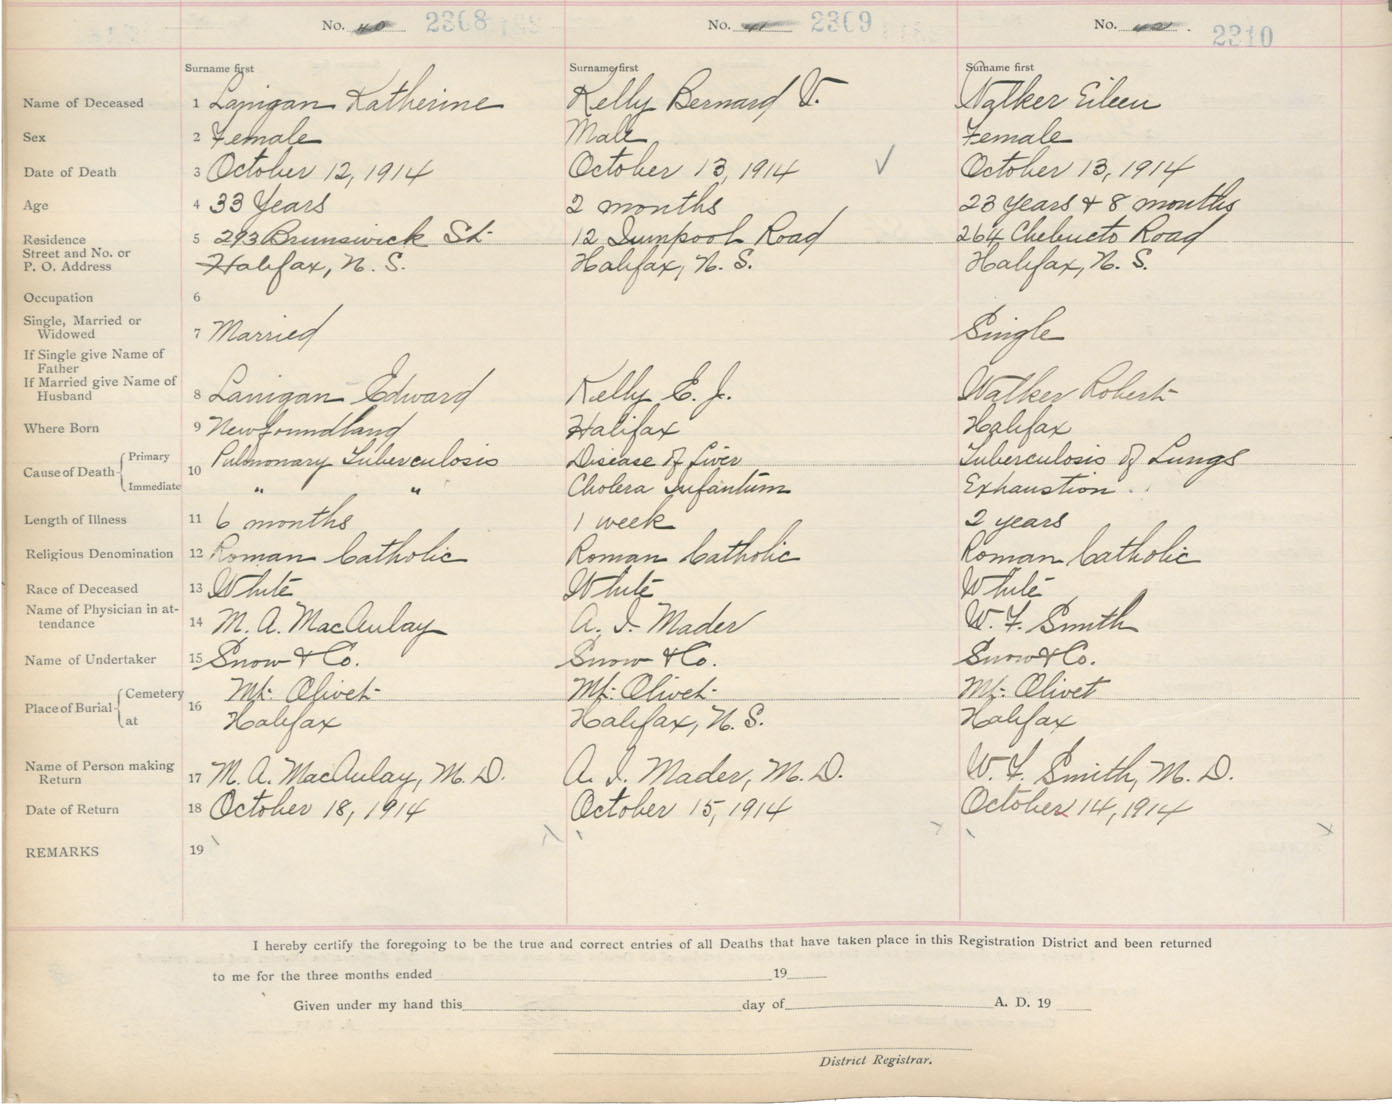 No. 40 2308 No. 41 2309 No. 42 2310
Surname first Surname first Surname first
Name of Deceased 1 Lanigan Katherine Kelly Bernard V. Walker Eileen
Sex 2 Female Male Female
Date of Death 3 October 12, 1914 October 13, 1914 ✓ October 13, 1914
Age 4 33 Years 2 months 23 years & 8 months
Residence 5 293 Brunswick St. 12 Road 264 Chebucto Road
Street and No. or
P. O. Address Halifax, N. S. Halifax, N. S. Halifax, N. S.
Occupation 6
Single, Married or
Widowed 7 Married Single
If Single give Name of
Father
If Married give Name of
Husband 8 Lanigan Edward Kelly E. J. Walker Robert
Where Born 9 Newfoundland Halifax Halifax
Cause of Death 10 Primary Pulmonary Tuberculosis Disease of Liver Tuberculosis of Lungs
Immediate " " Cholera Infantum Exhaustion
Length of Illness 11 6 months 1 week 2 years
Religious Denomination 12 Roman Catholic Roman Catholic Roman Catholic
Race of Deceased 13 White White White
Name of Physician in at-
tendance 14 M. A. MacAulay A. I. Mader W. F. Smith
Name of Undertaker 15 Snow & Co. Snow & Co. Snow & Co.
Place of Burial 16 Cemetery Mt. Olivet Mt. Olivet Mt. Olivet
at Halifax Halifax, N. S. Halifax
Name of Person making
Return 17 M. A. MacAulay, M. D. A. I. Mader, M. D. W. F. Smith, M. D.
Date of Return 18 October 18, 1914 October 15, 1914 October 14, 1914
REMARKS 19
I hereby certify the foregoing to be the true and correct entries of all Deaths that have taken place in this Registration District and been returned
to me for the three months ended 19
Given under my hand this day of A. D. 19
District Registrar.